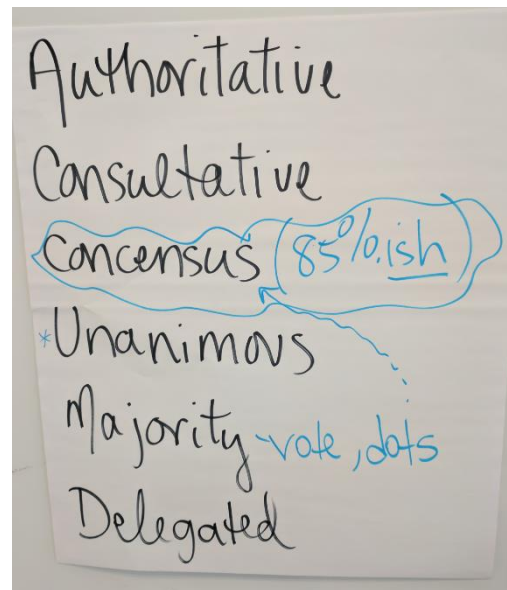 Authoritative
Consultative
Concensus (85%ish)
*Unanimous
Majority -vote, dots
Delegated